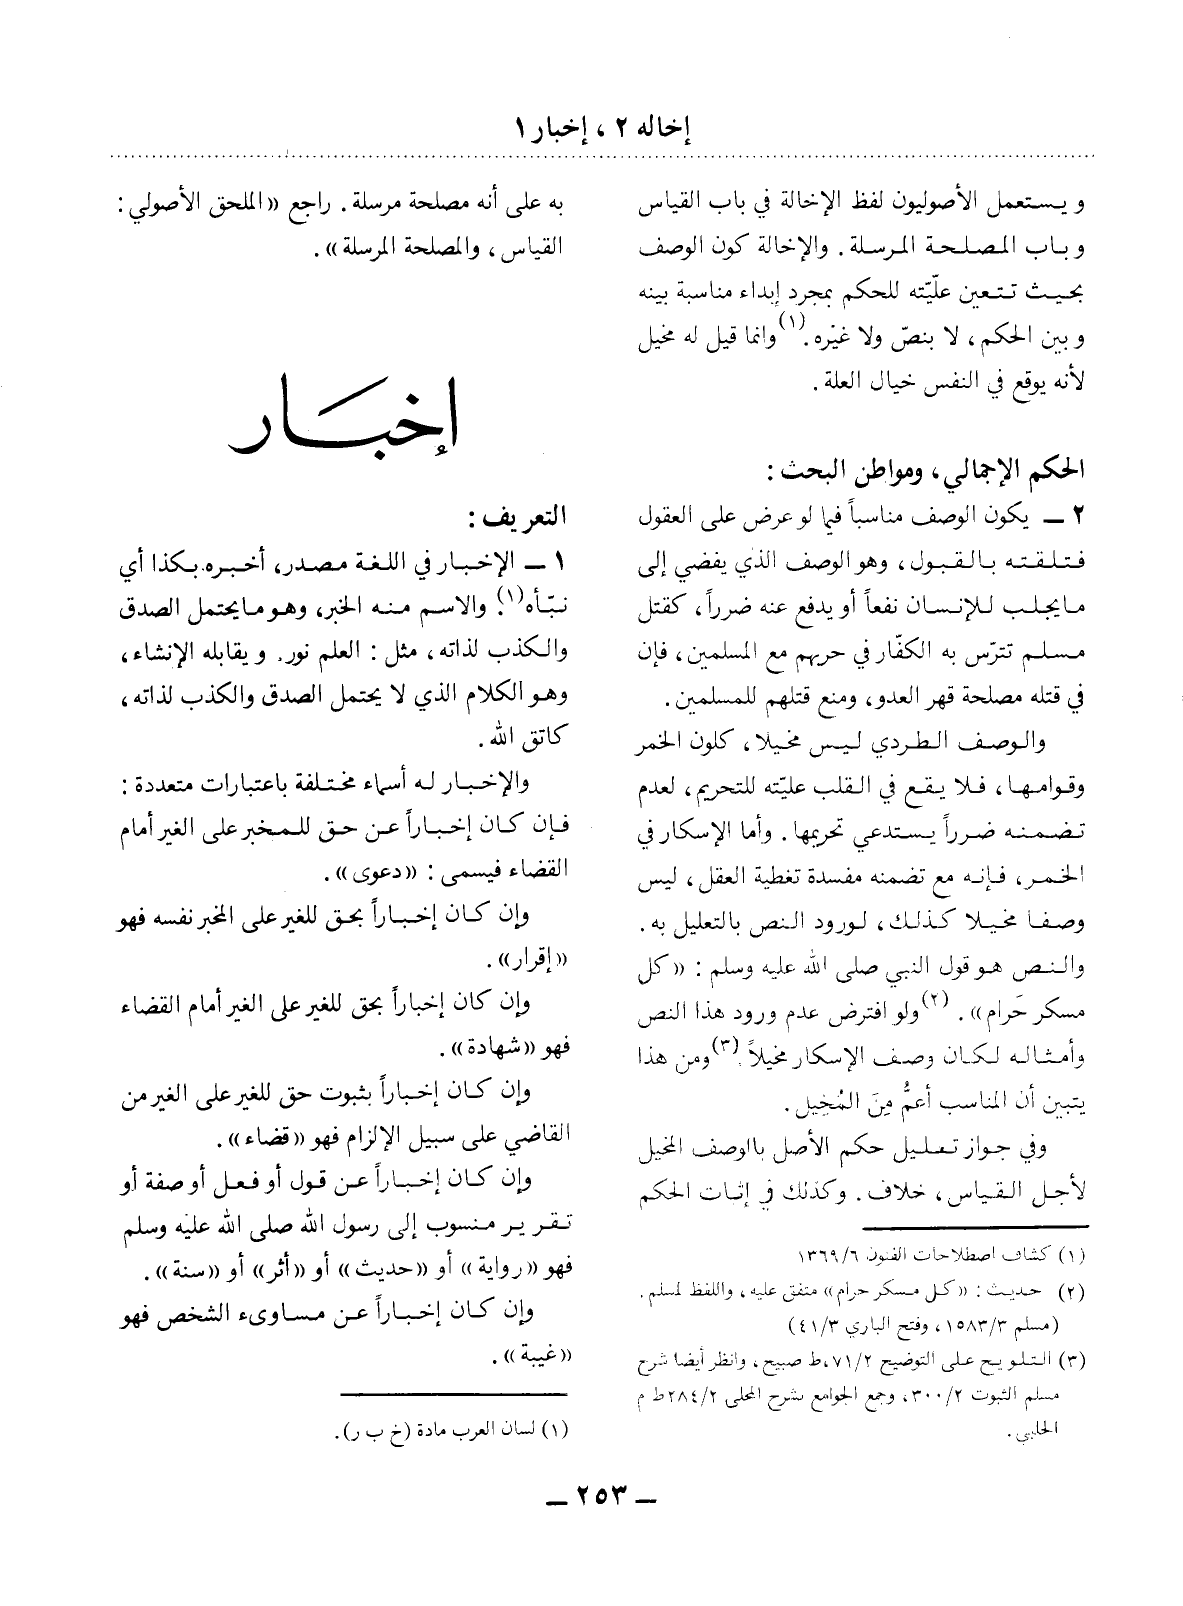 إخاله ٢ ، إخبار ١
ويستعمل الأصوليون لفظ الإخالة في باب القياس
وباب المصلحة المرسلة . والإخالة كون الوصف
بحيث تتعين علّيّته للحكم بمجرد إبداء مناسبة بينه
وبين الحكم ، لا بنصّ ولا غيّره .(١) وانما قيل له مخيل
لأنه يوقع في النفس خيال العلة .
الحكم الإجمالي ، ومواطن البحث :
٢ ــ يكون الوصف مناسباً فيما لو عرض على العقول
فتلقته بالقبول ، وهو الوصف الذي يفضي إلى
مايجلب للإنسان نفعاً أو يدفع عنه ضرراً ، كقتل
مسلم تترّس به الكفّار في حربهم مع المسلمين ، فإن
في قتله مصلحة قهر العدو ، ومنع قتلهم للمسلمين .
والوصف الطردي ليس مخيلا ، كلون الخمر
وقوامها ، فلا يقع في القلب عليّته للتحريم ، لعدم
تضمنه ضرراً يستدعي تحريمها . وأما الإسكار في
الخمر ، فإنه مع تضمنه مفسدة تغطية العقل ، ليس
وصفا مخيلا كذلك ، لورود النص بالتعليل به .
والنص هو قول النبي صلى الله عليه وسلم : «كل
مسكر حَرام» . (٢) ولو افترض عدم ورود هذا النص
وأمثاله لكان وصف الإسكار مخيلاً .(٣) ومن هذا
يتبين أن المناسب أعمُّ مِنَ المُخِيل .
وفي جواز تعليل حكم الأصل بالوصف المخيل
لأجل القياس ، خلاف . وكذلك في إثبات الحكم
(١) كشاف اصطلاحات الفنون ١٣٦٩/٦
(٢) حديث : «كل مسكر حرام» متفق عليه ، واللفظ لمسلم .
(مسلم ١٥٨٣/٣ ، وفتح الباري ٤١/٣)
(٣) التلويح على التوضيح ٧١/٢ ، ط صبيح ، وانظر أيضا شرح
مسلم الثبوت ٣٠٠/٢ ، وجمع الجوامع بشرح المحلى ٢٨٤/٢ ط م
الحلبي .
به على أنه مصلحة مرسلة . راجع «الملحق الأصولي :
القياس ، والمصلحة المرسلة» .
إخبار
التعريف :
١ ــ الإخبار في اللغة مصدر ، أخبره بكذا أي
نبّأه (١). والاسم منه الخبر ، وهو مايحتمل الصدق
والكذب لذاته ، مثل : العلم نور . ويقابله الإنشاء ،
وهو الكلام الذي لا يحتمل الصدق والكذب لذاته ،
كاتق الله .
والإخبار له أسماء مختلفة باعتبارات متعددة :
فإن كان إخباراً عن حق للمخبر على الغير أمام
القضاء فيسمى : «دعوى» .
وإن كان إخباراً بحق للغير على المخبر نفسه فهو
«إقرار» .
وإن كان إخباراً بحق للغير على الغير أمام القضاء
فهو «شهادة» .
وإن كان إخباراً بثبوت حق للغير على الغير من
القاضي على سبيل الإلزام فهو «قضاء» .
وإن كان إخباراً عن قول أو فعل أو صفة أو
تقرير منسوب إلى رسول الله صلى الله عليه وسلم
فهو «رواية» أو «حديث» أو «أثر» أو «سنة» .
وإن كان إخباراً عن مساوىء الشخص فهو
«غيبة» .
(١) لسان العرب مادة (خ ب ر) .
ــ ٢٥٣ ــ